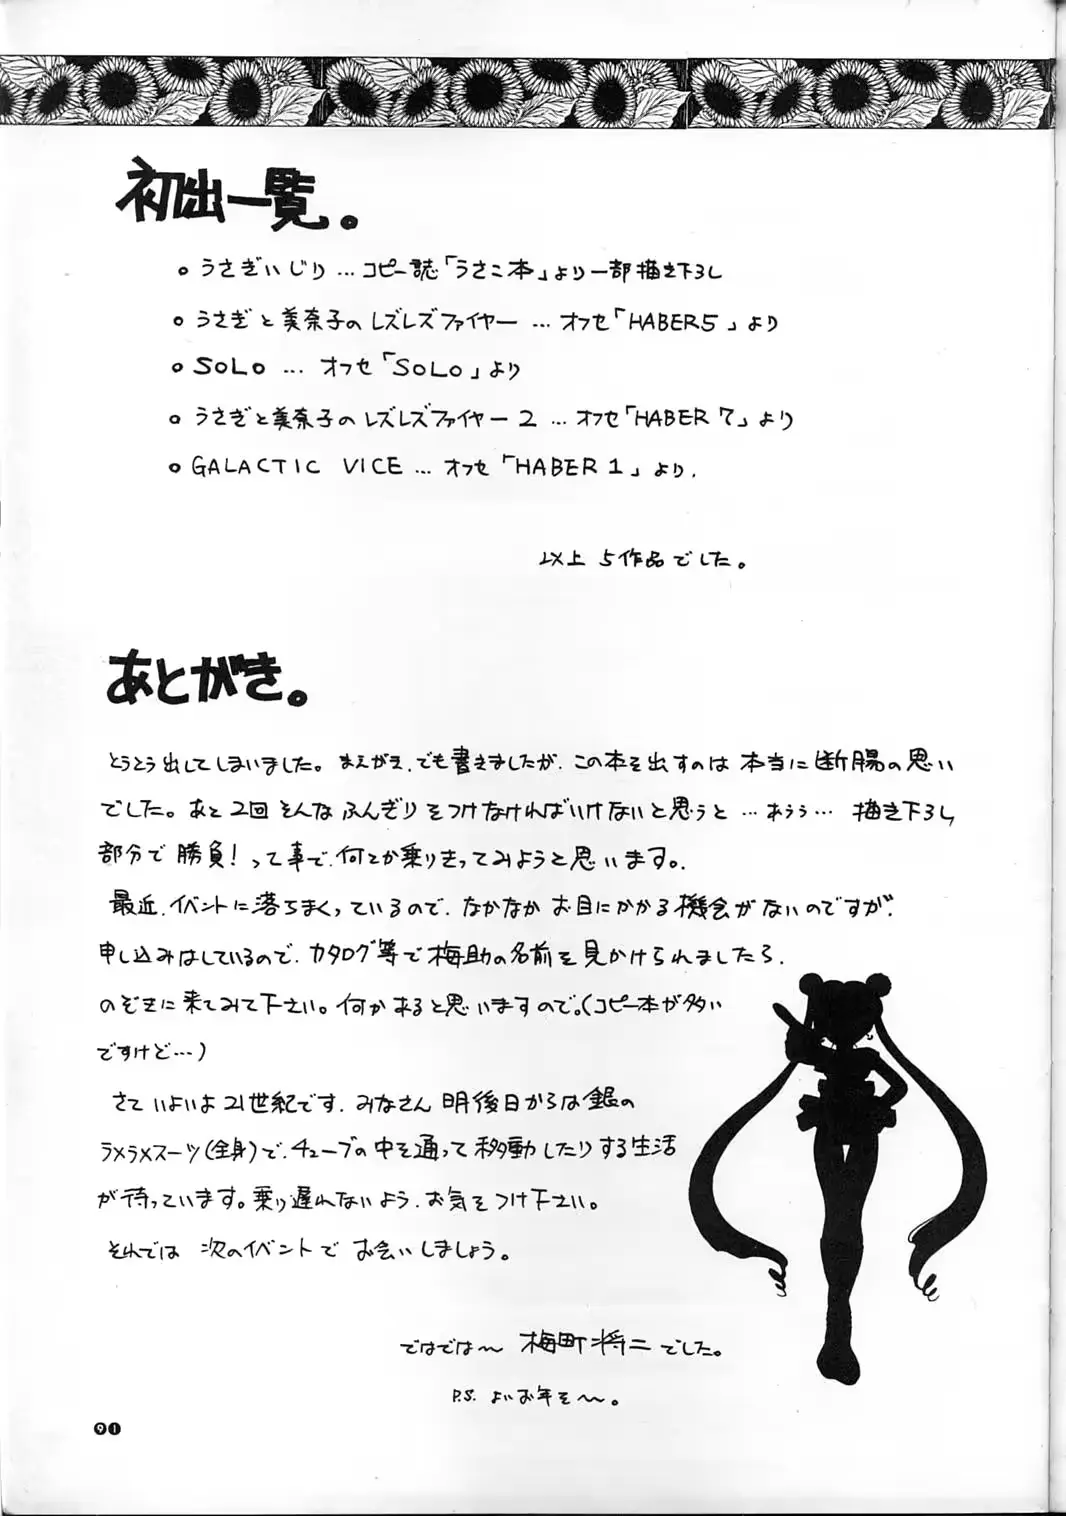 初出一覧。
○うさぎいじり…コピー誌「うさこ本」より一部描き下ろし
○うさぎと美奈子のレズレズファイヤー…オフセ「HABER5」より
○SOLO…オフセ「SOLO」より
○うさぎと美奈子のレズレズファイヤー2…オフセ「HABER7」より
○GALACTIC VICE…オフセ「HABER1」より.
以上5作品でした。
あとがき。
とうとう出してしまいました。まえがき.でも書きましたが.この本を出すのは本当に断腸の思い
でした。あと2回そんなふんぎりをつけなければいけないと思うと…あうぅ…描き下ろし
部分で勝負!って事で.何とか乗りきってみようと思います。
最近.イベントに落ちまくっているので.なかなかお目にかかる機会がないのですが.
申し込みはしているので.カタログ等で梅助の名前を見かけられましたら.
のぞきに来てみて下さい。何かあると思いますので。(コピー本が多い
ですけど…)
さていよいよ21世紀です.みなさん明後日からは銀の
ラメラメスーツ(全身)で.チューブの中を通って移動したりする生活
が待っています。乗り遅れないよう.お気をつけ下さい。
それでは次のイベントでお会いしましょう。
ではでは〜梅町将二でした。
P.S. よいお年を〜。
91